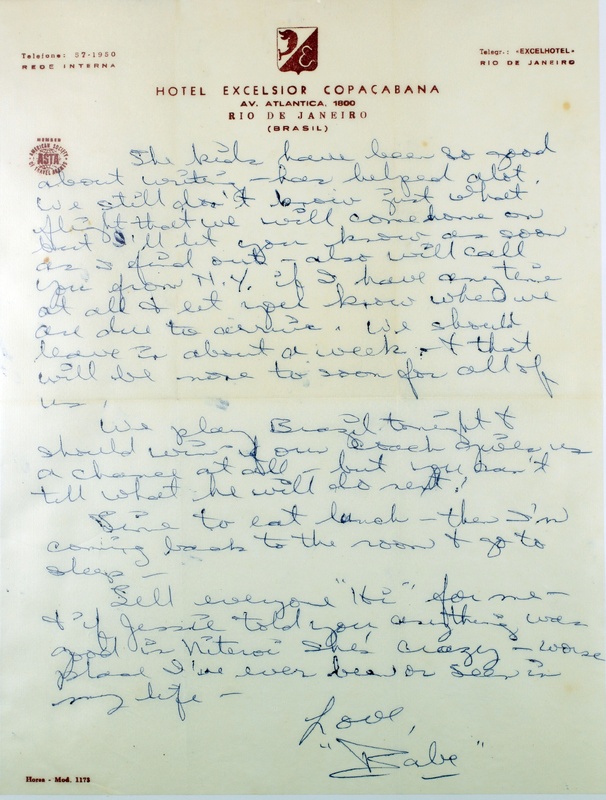 Telefone: 37-1950
REDE INTERNA
Telegr.: «EXCELHOTEL»
RIO DE JANEIRO
HOTEL EXCELSIOR COPACABANA
AV. ATLANTICA, 1800
RIO DE JANEIRO
(BRASIL)
MEMBER
AMERICAN SOCIETY
ASTA
OF TRAVEL AGENTS
The kids have been so good
about writing - has helped alot.
We still don't know just what
flight that we will come home on
but I'll let you know as soon
as I find out - also will call
you from N.Y. if I have anytime
at all & let you know when we
are due to arrive. We should
leave in about a week - & that
will be none to soon for all of
us!
We play Brazil tonight &
should win - if our coach gives us
a chance at all - but you can't
till what he will do next!
Time to eat lunch - then I'm
coming back to the room & go to
sleep -
Tell everyone "Hi" for me -
& if Jessie told you anything was
good in Niteroi she's crazy - worse
place I've ever been or seen in
my life -
Love,
"Babe"
Hores - Mod. 1173